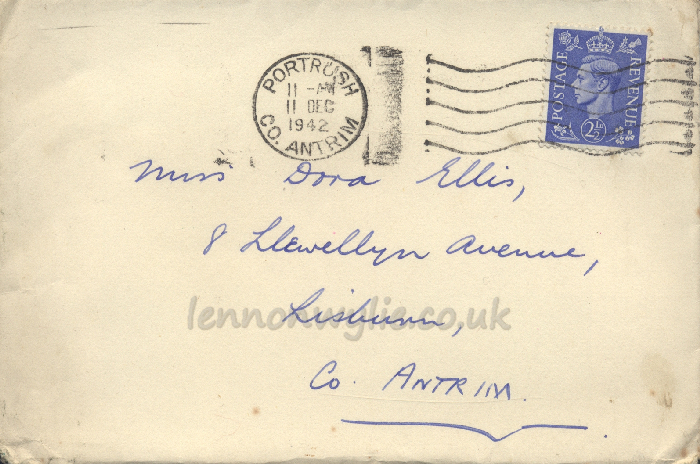 PORTRUSH
11 - AM
11 DEC
1942
CO. ANTRIM
POSTAGE
REVENUE
2½D
Miss Dora Ellis,
8 Llewellyn Avenue,
Lisburn,
lennonwylie.co.uk
Co. ANTRIM.